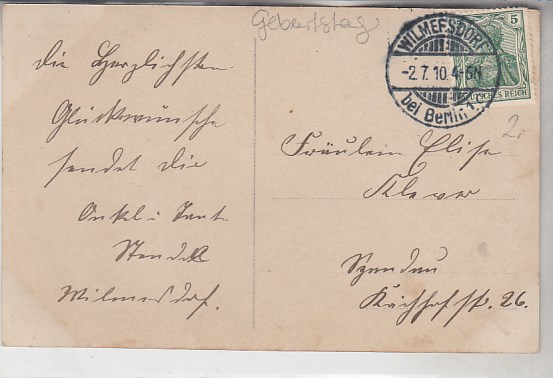 Geburtstag
die Herzlichsten
Glückwünsche
sendet die
Onkel u Tante
Stendel
Wilmersdorf.
WILMERSDORF
-2.7.10.4-5N
bei Berlin 1 c
5
DEUTSCHES REICH
2.
Fräulein Elise
Klever
Spandau
Kirchhofstr. 26.